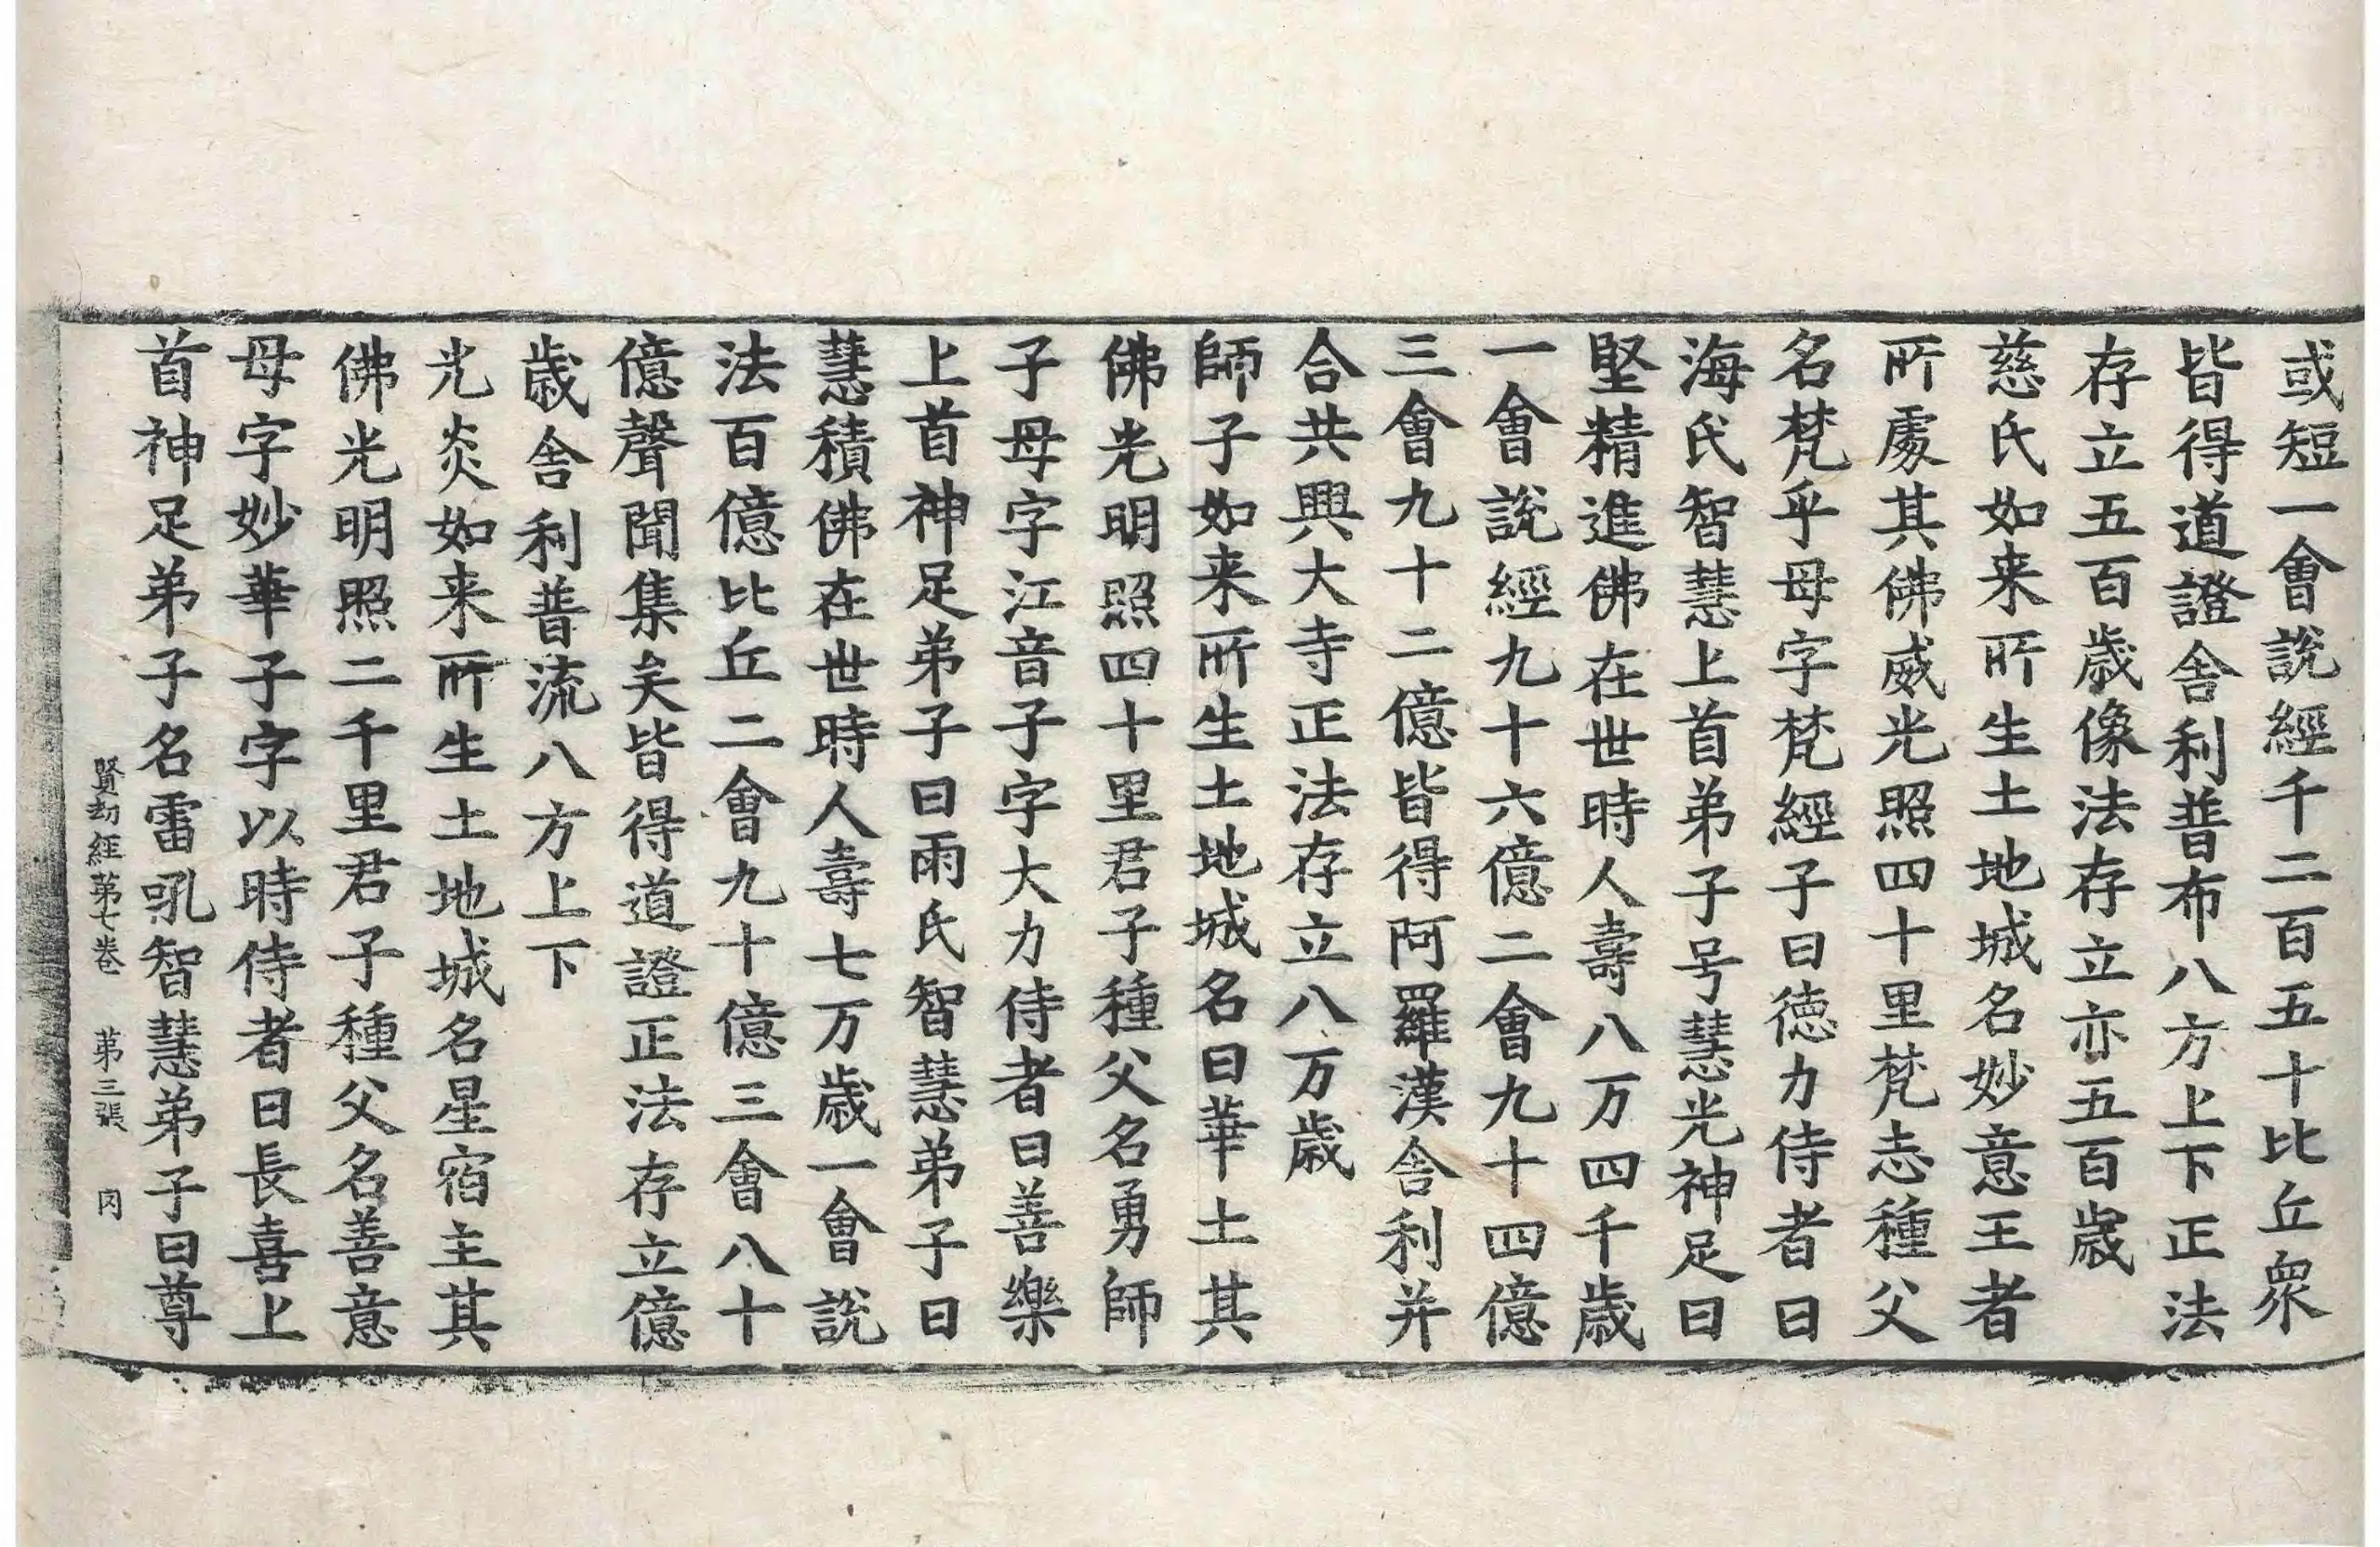 或短一會說經千二百五十比丘衆
皆得道證舎利普布八方上下正法
存立五百歲像法存立亦五百歲
慈氏如来所生土地城名妙意王者
所處其佛威光照四十里梵志種父
名梵乎母字梵經子曰德力侍者曰
海氏智慧上首弟子号慧光神足曰
堅精進佛在世時人壽八万四千歲
一會說經九十六億二會九十四億
三會九十二億皆得阿羅漢舎利并
合共興大寺正法存立八万歲
師子如来所生土地城名曰華土其
佛光明照四十里君子種父名勇師
子母字江音子字大力侍者曰善樂
上首神足弟子曰雨氏智慧弟子曰
慧積佛在世時人壽七万歲一會說
法百億比丘二會九十億三會八十
億聲聞集矣皆得道證正法存立億
歲舎利普流八方上下
光炎如来所生土地城名星宿主其
佛光明照二千里君子種父名善意
母字妙華子字以時侍者曰長喜上
首神足弟子名雷吼智慧弟子曰尊
賢劫經第七卷 第三張 罔